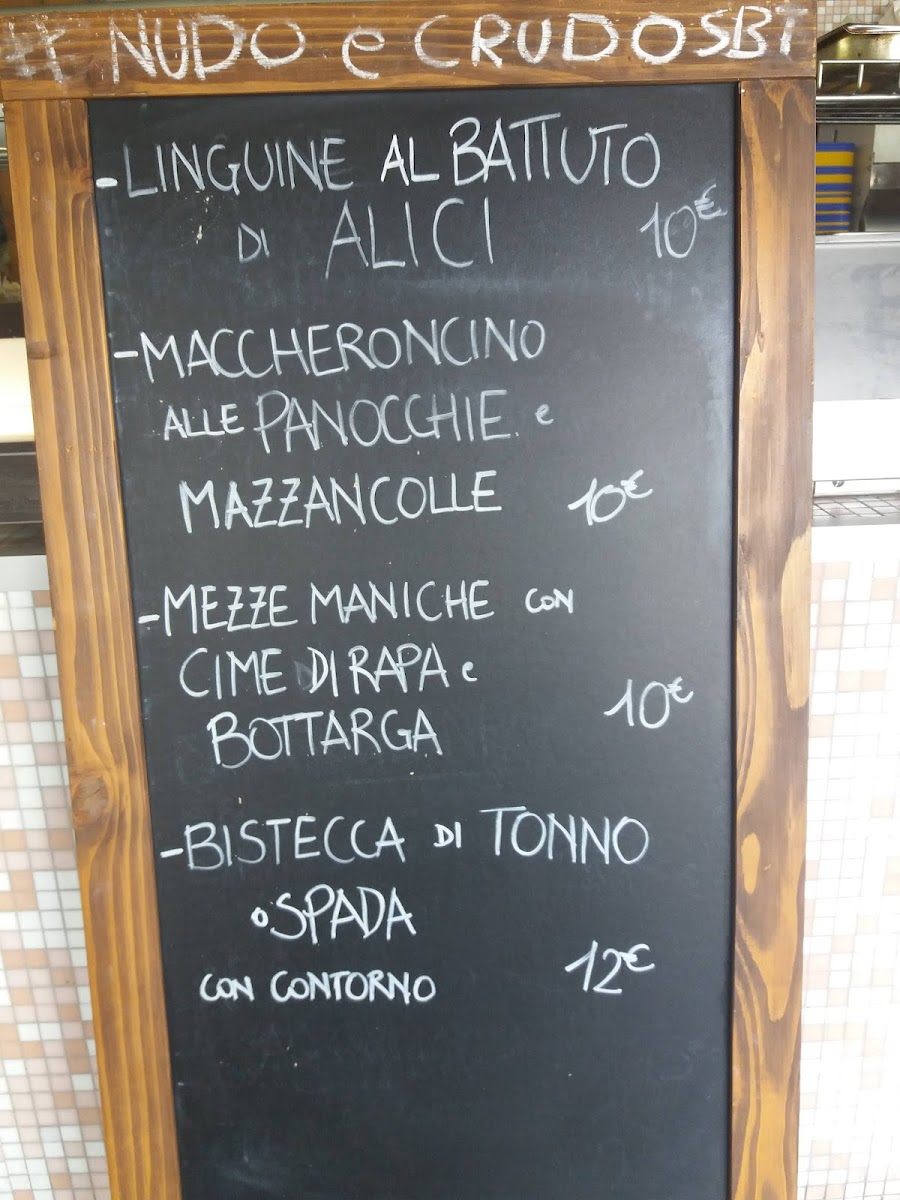 # NUDO e CRUDOSBT
- LINGUINE AL BATTUTO
DI ALICI 10€
- MACCHERONCINO
ALLE PANOCCHIE e
MAZZANCOLLE 10€
- MEZZE MANICHE CON
CIME DI RAPA e
BOTTARGA 10€
- BISTECCA DI TONNO
o SPADA
CON CONTORNO 12€